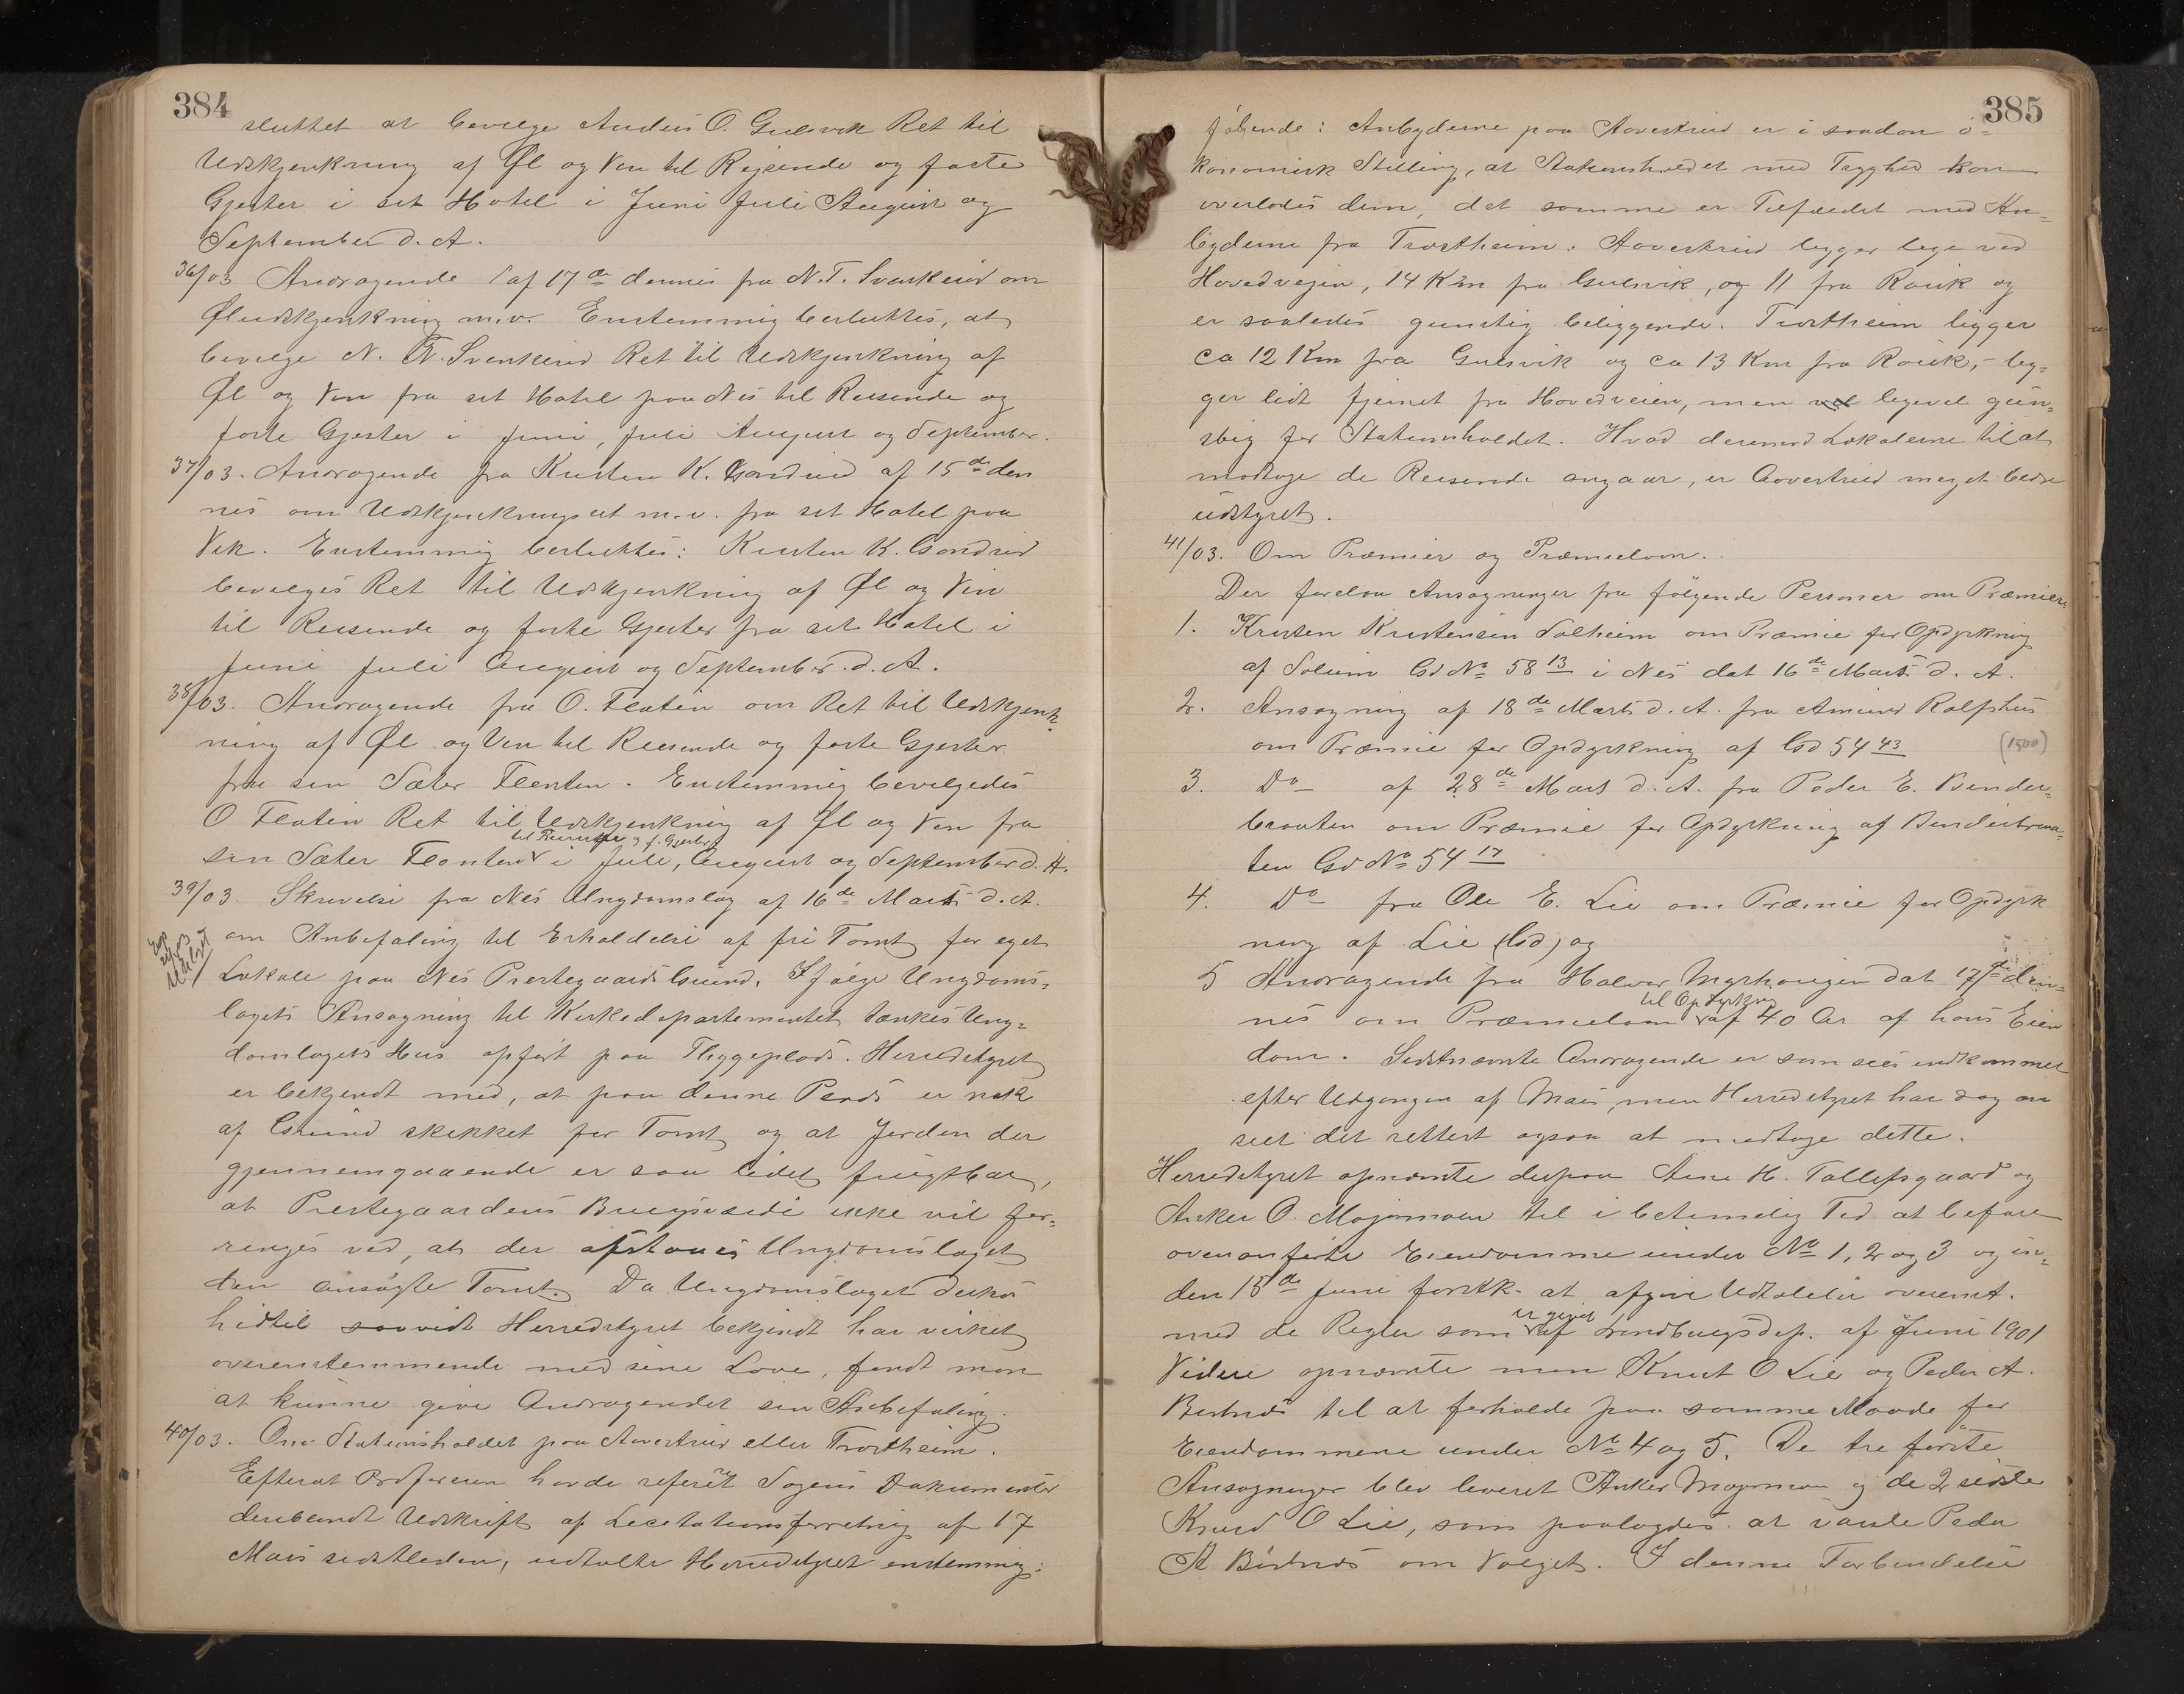 384
sluttet at bevilge Anders O. Gulsvik Ret til
Udskjenkning af Øl og Vin til Rejsende og faste
Gjester i sit Hotel i Juni Juli August og
September d. A.
36/03 Andragende af 17de dennes fra N. T. Svenkerud om
Øludskjenkning m.v. Enstemmig besluttes, at
bevilge N. T. Svenkerud Ret til Udskjenkning af
Øl og Vin fra sit Hotel paa Nes til Reisende og
faste Gjester i Juni, Juli August og September.
37/03. Andragende fra Kristen K. Gandrud af 15de den
nes om Udskjenkningsret m.v. fra sit Hotel paa
Vik. Enstemmig besluttes: Kristen K. Gandrud
bevilges Ret til Udskjenkning af Øl og Vin
til Reisende og faste Gjester fra sit Hotel i
Juni Juli August og September d. A.
38/03. Andragende fra O. Flaten om Ret til Udskjenk-
ning af Øl og Vin til Reisende og faste Gjester
fra sin Sæter Flenten. Enstemmig bevilgedes
O Flaten Ret til Udskjenkning af Øl og Vin fra
til Reisende og f. Gjester
sin Sæter i Juli, August og September d. A.
39/03. Skrivelse fra Nes Ungdomslag af 16de Marts d. A.
om Anbefaling til Erholdelse af fri Tomt for eget
Lokale paa Nes Prestegaards Grund. Ifølge Ungdoms-
lagets Ansøgning til Kirkedepartementet tænkes Ung-
domlagets Hus opført paa Thiggeplads. Herredstyret
er bekjendt med, at paa denne Plads er nok
af Grund skikket for Tomt og at Jorden der
gjennemgaaende er saa lidet frugtbar,
at Prestegaardens Brugsværdi ikke vil for-
ringes ved, at der afstaaes Ungdomslaget
den ansøgte Tomt. Da Ungdomslaget desuden
hidtil saavidt Herredstyret bekjendt har virket
overenstemmende med sine Love, fandt man
at kunne give Andragendet sin Anbefaling.
40/03. Om Stationsholdet paa Aavestrud eller Trostheim.
Efterat Ordføreren havde referet Sagens Dokumenter
deriblandt Udskrift af Licitationsforretning af 17
Mars sidstleden, udtalte Herredstyret enstemmig:
385
følgende: Anbyderne paa Aavestrud er i saadan ø-
konomisk Stilling, at Stationsholdet med Tryghed kan
overlades dem, det samme er Tilfældet med An-
byderne fra Trostheim. Aavestrud ligger lige ved
Hovedvejen, 14 Km fra Gulsvik, og 11 fra Roik og
er saaledes gunstig beliggende. Trostheim ligger
ca 12 Km fra Gulsvik og ca 13 Km fra Roik, - lig-
ger lidt fjernet fra Hovedveien, men vel ligevel gun-
stig for Stationsholdet. Hvad derimod Lokalerne til at
modtage de Reisende angaar, er Aavestrud meget bedre
udstyret.
41/03. Om Præmier og Præmielaan.
Der forelaa Ansøgninger fra følgende Personer om Præmier.
1. Kristen Kristensen Solheim om Præmie for Opdyrkning
af Solheim Gd No 58 13 i Nes dat 16de Marts d. A.
2. Ansøgning af 18de Marts d. A. fra Amund Rolfshus
om Præmie for Opdyrkning af Gd 54 43 (1500)
3. Do af 28de Mars d. A. fra Peder E. Bender-
braaten om Præmie for Opdyrkning af Benderbraa-
ten Gd No 54 17
4. Do fra Ole E. Lie om Præmie for Opdyrk
ning af Lie (Gd) og
5 Andragende fra Halvor Myrhaugen dat 17de den-
til Opdyrkning
nes om Præmielaan af 40 Ar af hans Eien
dom. Sidstnævnte Andragende er som sees indkommet
efter Udgangen af Mars, men Herredstyret har dog an
seet det rettest ogsaa at medtage dette.
Herredstyret opnævnte derpaa Arne H. Tollefsgaard og
Anker O. Mojonmoen til i betimelig Tid at befare
ovenanførte Eiendomme under No 1, 2 og 3 og in-
den 15de Juni førstk. at afgive Udtalelse overenst.
er givet
med de Regler som af Landbrugsdep. af Juni 1901
Videre opnævnte man Knut O Lie og Peder A.
Børtnes til at forholde paa samme Maade for
Eiendommene under No 4 og 5. De tre første
Ansøgninger blev leveret Anker Mojonmoen og de 2 sidste
Knud O Lie, som paalagdes at varsle Peder
A Børtnes om Valget. I denne Forbindelse